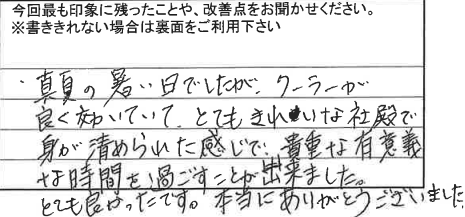 今回最も印象に残ったことや、改善点をお聞かせください。
※書ききれない場合は裏面をご利用下さい
・真夏の暑い日でしたが、クーラーが
良く効いていて、とてもきれいな社殿で
身が清められた感じで、貴重な有意義
な時間を過ごすことが出来ました。
とても良かったです。本当にありがとうございました。